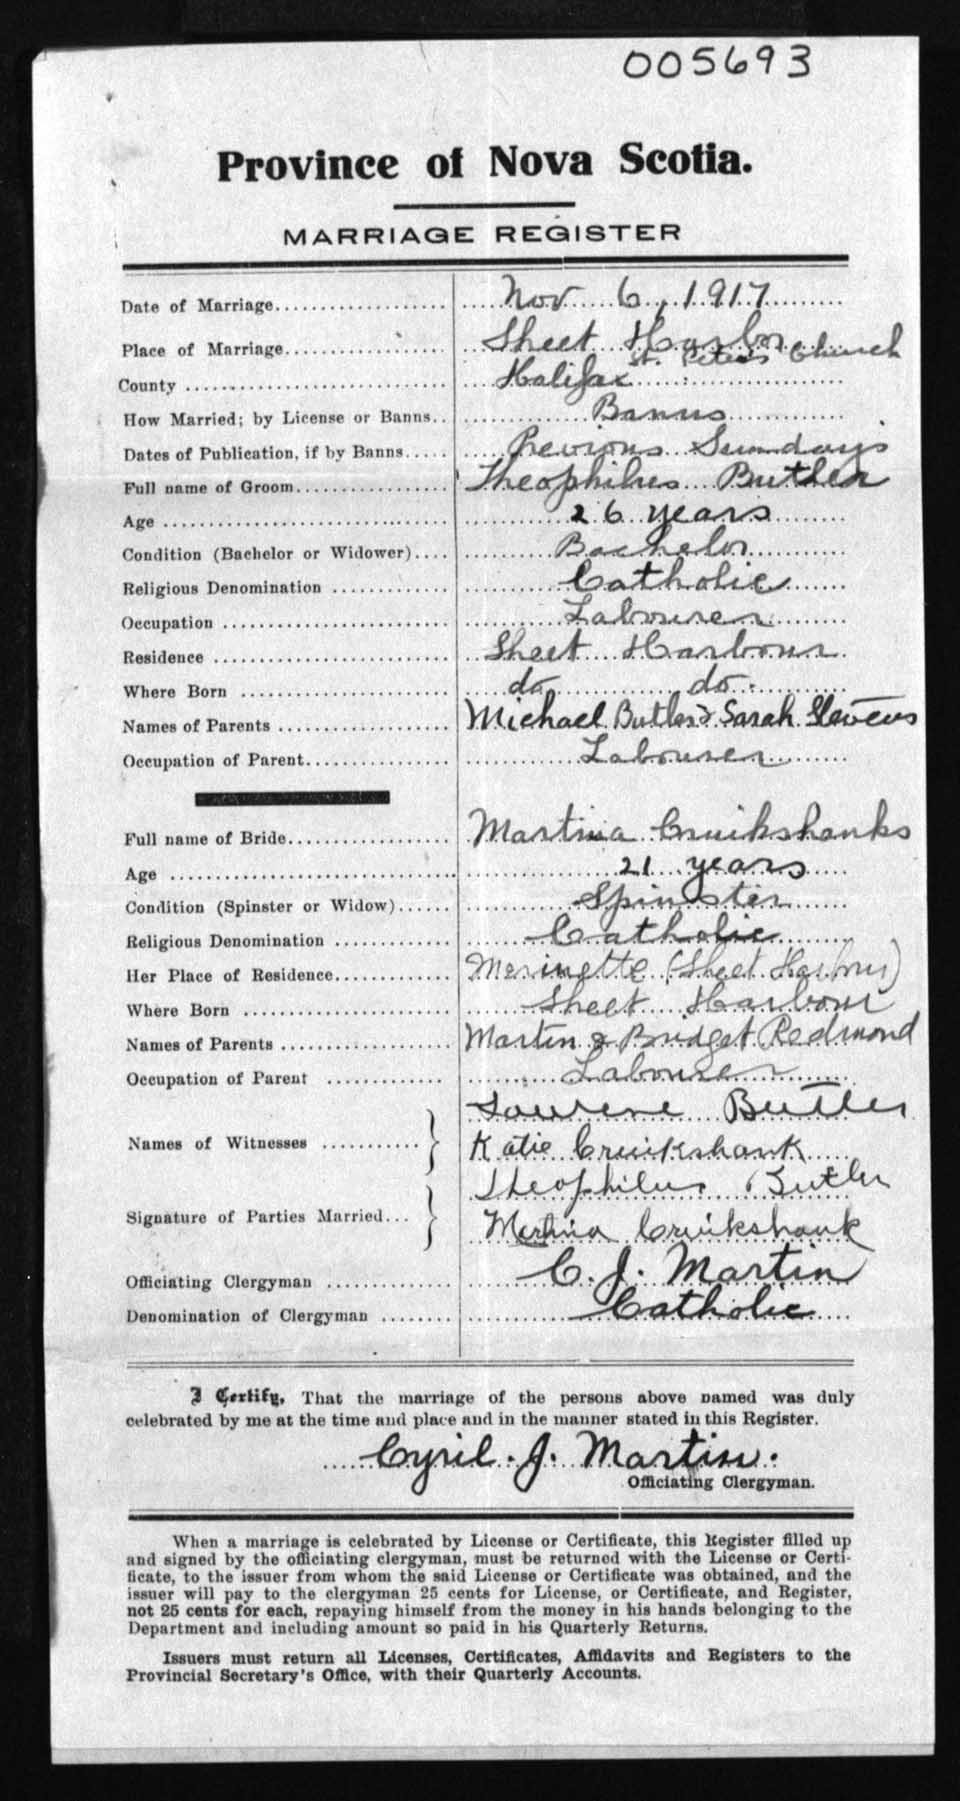 005693
Province of Nova Scotia.
MARRIAGE REGISTER
Date of Marriage.................... Nov 6, 1917
Place of Marriage................... Sheet Harbor
St. Peter's Church
County .............................. Halifax
How Married; by License or Banns.. Banns
Dates of Publication, if by Banns..... Previous Sundays
Full name of Groom.................. Theophilus Butler
Age ................................. 26 years
Condition (Bachelor or Widower).... Bachelor
Religious Denomination .............. Catholic
Occupation .......................... Labourer
Residence ........................... Sheet Harbour
Where Born .......................... do do
Names of Parents .................... Michael Butler & Sarah Stevens
Occupation of Parent................. Labourer
Full name of Bride................... Martina Cruikshanks
Age ................................. 21 years
Condition (Spinster or Widow)...... Spinster
Religious Denomination ............. Catholic
Her Place of Residence............. (Sheet Harbour)
Where Born ......................... Sheet Harbour
Names of Parents ................... Martin & Bridget Redmond
Occupation of Parent ............... Labourer
Names of Witnesses ........... } Butler
Katie Cruikshank
Signature of Parties Married... } Theophilus Butler
Martina Cruikshank
Officiating Clergyman .............. C. J. Martin
Denomination of Clergyman ........ Catholic
I Certify, That the marriage of the persons above named was duly
celebrated by me at the time and place and in the manner stated in this Register.
Cyril. J. Martin.
Officiating Clergyman.
When a marriage is celebrated by License or Certificate, this Register filled up
and signed by the officiating clergyman, must be returned with the License or Certi-
ficate, to the issuer from whom the said License or Certificate was obtained, and the
issuer will pay to the clergyman 25 cents for License, or Certificate, and Register,
not 25 cents for each, repaying himself from the money in his hands belonging to the
Department and including amount so paid in his Quarterly Returns.
Issuers must return all Licenses, Certificates, Affidavits and Registers to the
Provincial Secretary's Office, with their Quarterly Accounts.